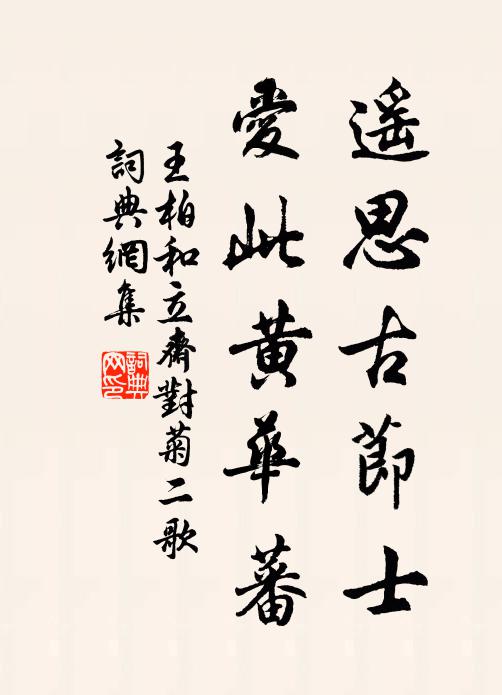 遥思古節士
愛此黃華蕃
王柏和立齋對菊二歌
詞典網集
詞典網印